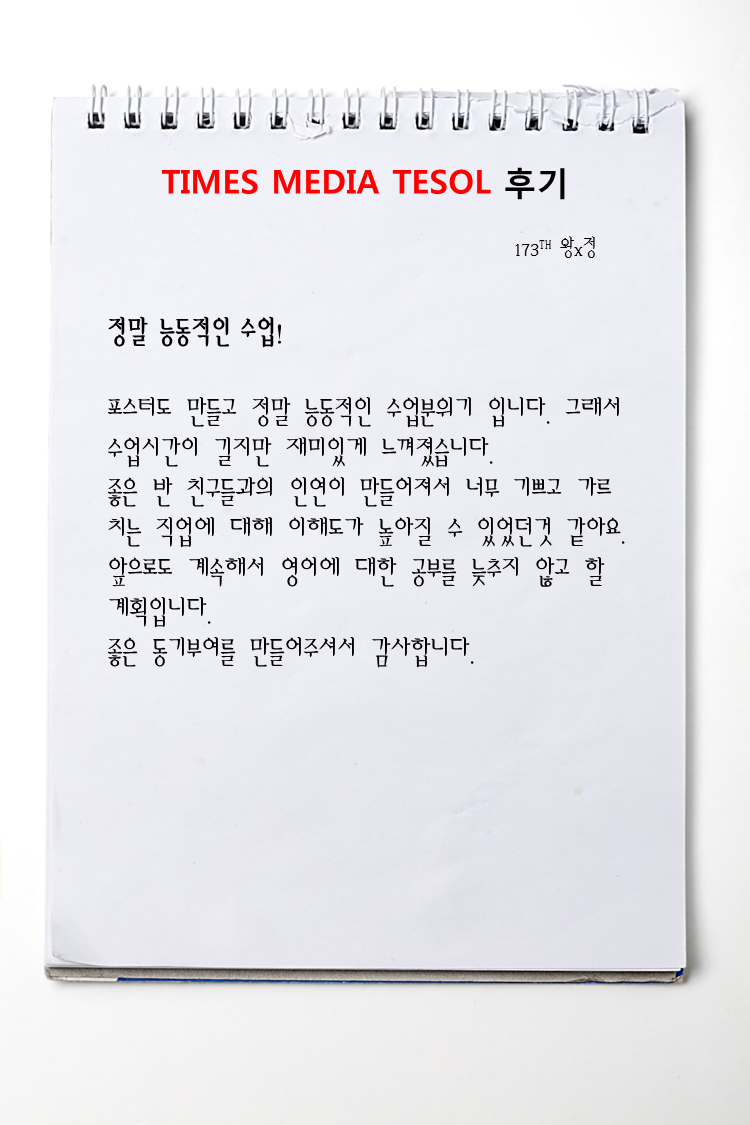 TIMES MEDIA TESOL 후기
173TH 왕x정
정말 능동적인 수업!
포스터도 만들고 정말 능동적인 수업분위기 입니다. 그래서
수업시간이 길지만 재미있게 느껴졌습니다.
좋은 반 친구들과의 인연이 만들어져서 너무 기쁘고 가르
치는 직업에 대해 이해도가 높아질 수 있었던것 같아요.
앞으로도 계속해서 영어에 대한 공부를 늦추지 않고 할
계획입니다.
좋은 동기부여를 만들어주셔서 감사합니다.